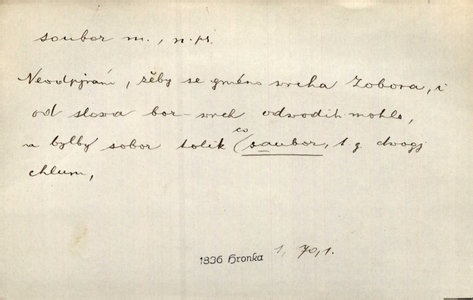 soubor m., n. pr.
Neodpjrám, žěby se gméno wrcha Zobora, i
od slowa bor-wrch odwodit mohlo,
a bylby sobor tolik co saubor, t g dwogj
chlum,
1836 Hronka 1, 70, 1.